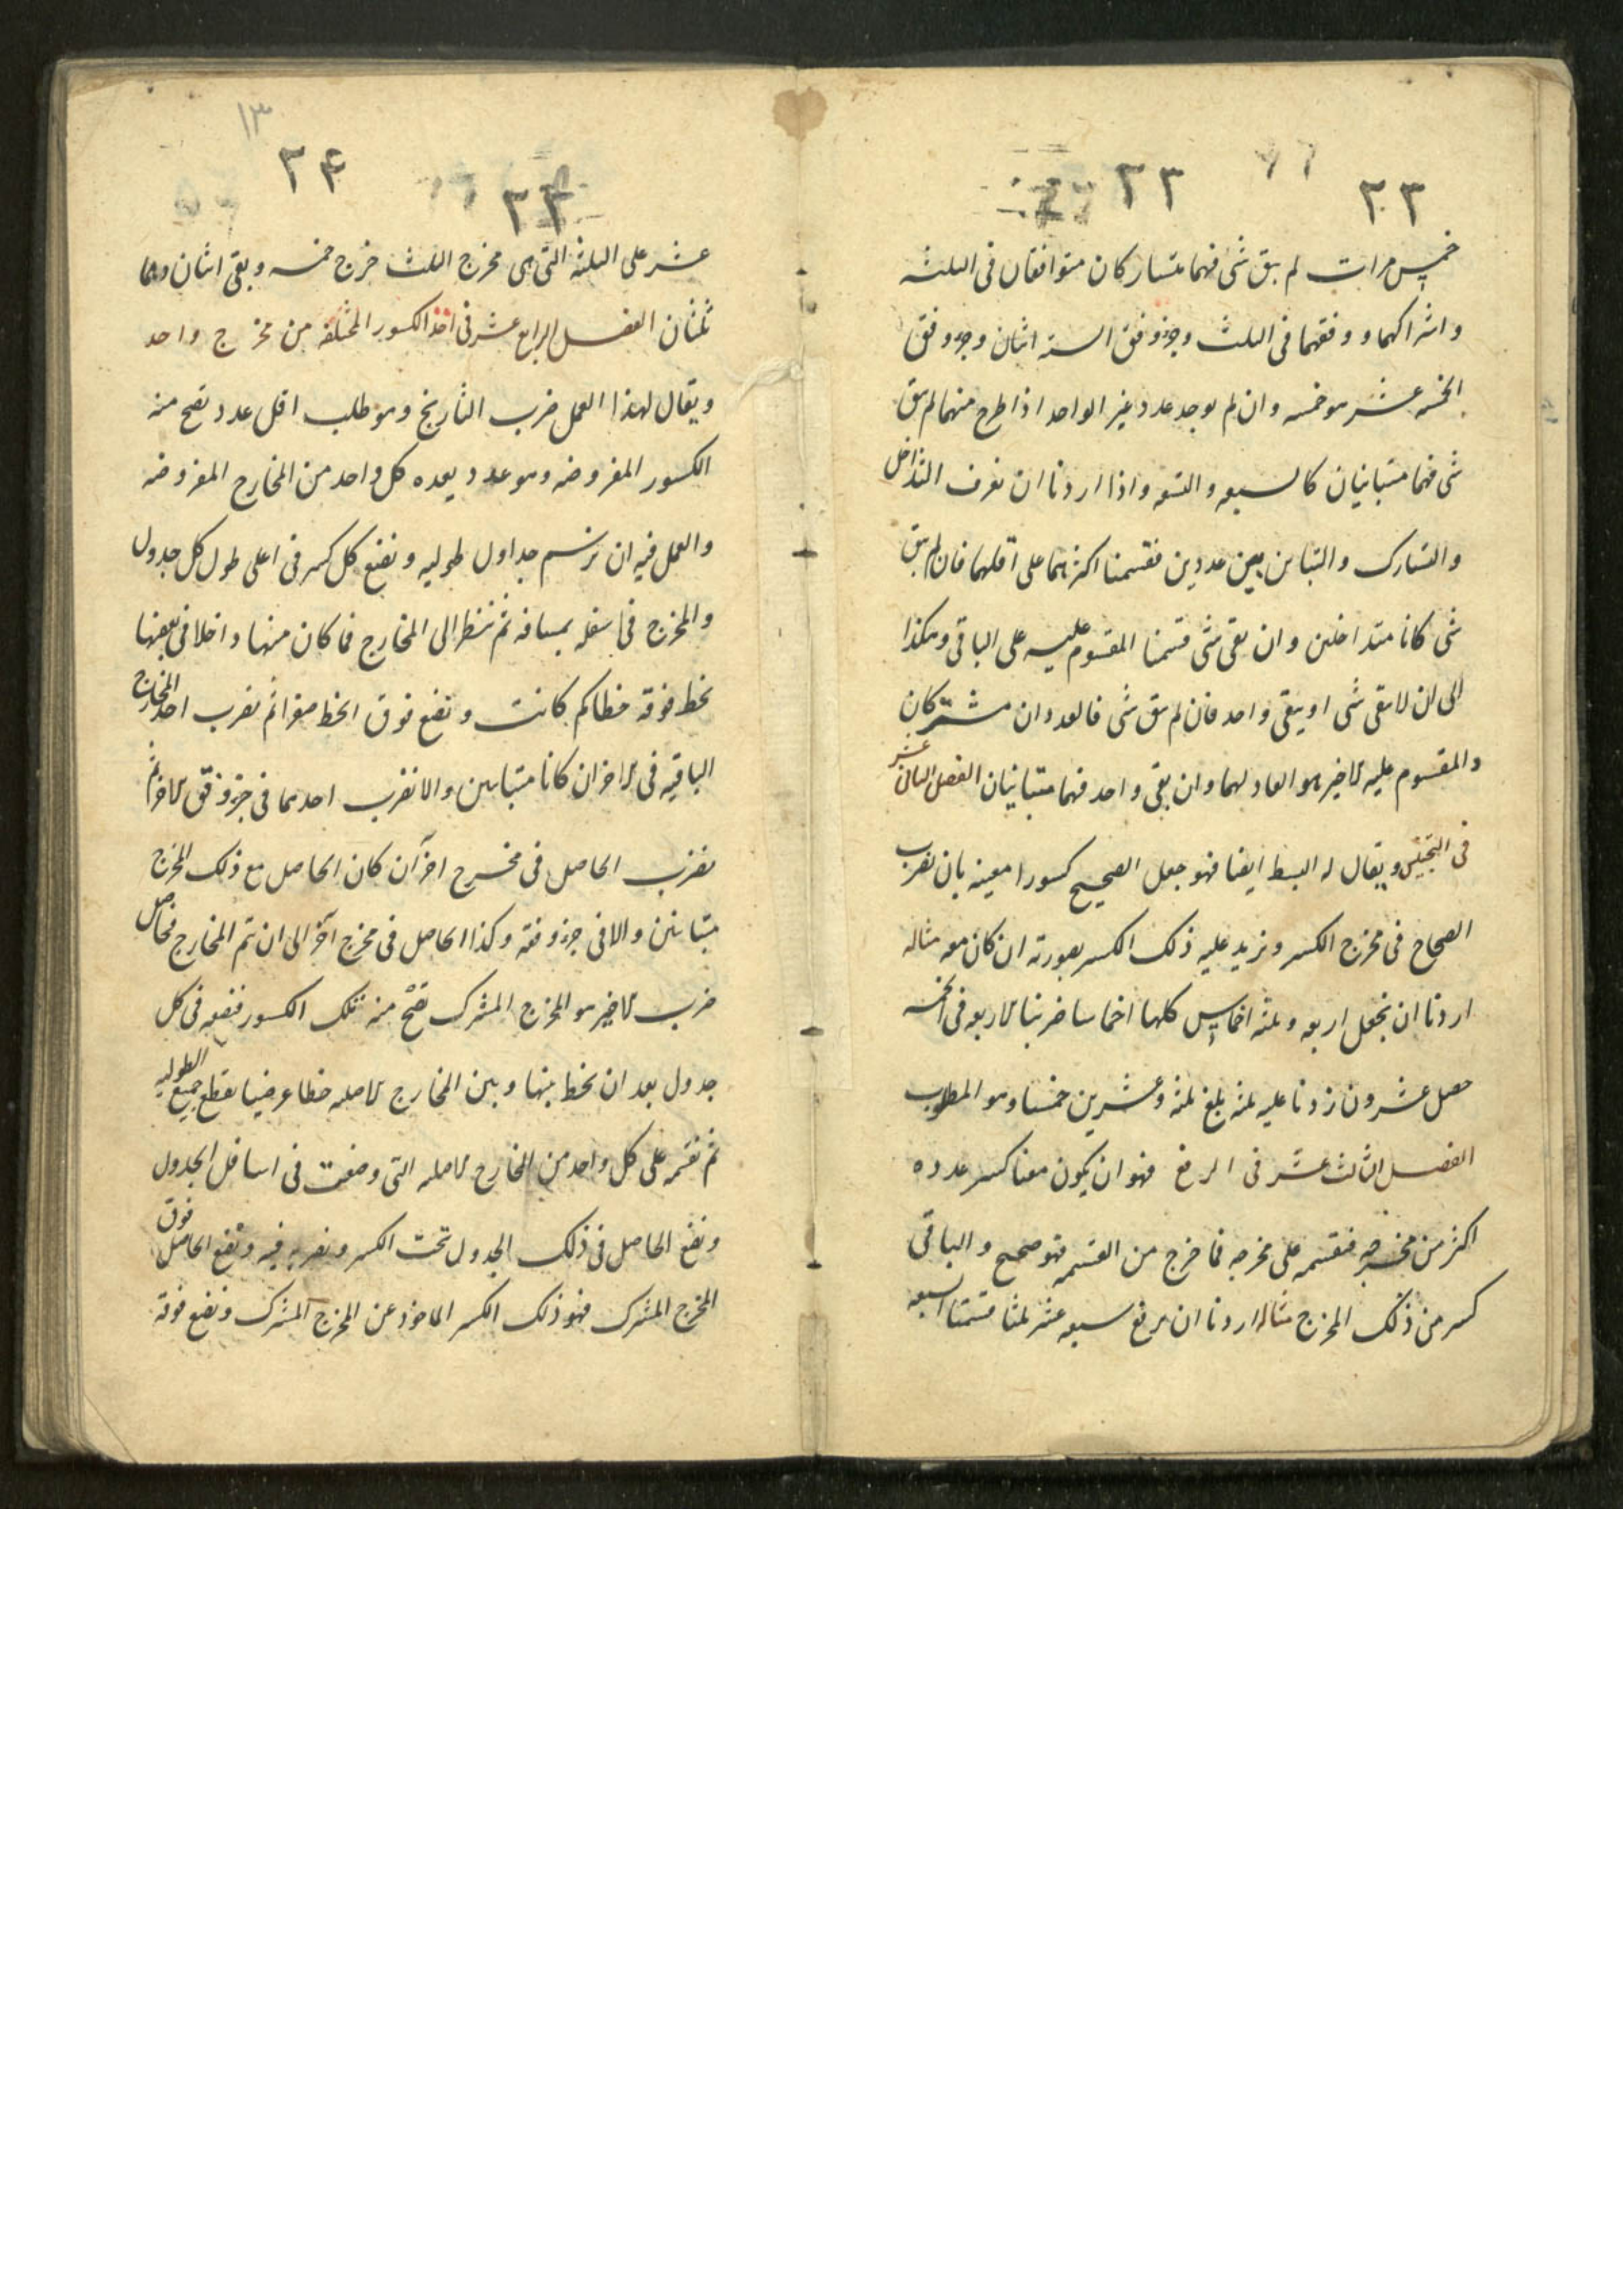 ٣٣ ٣٣
خمس مرات لم يبق شئ فهما متشاركان متوافقان فى الثلثة
واشتراكهما ووفقهما فى الثلث وجزو وفق الستة اثنان وجزو وفق
الخمسة عشر هو خمسه وان لم يوجد عدد غير الواحد اذا طرح منهما لم يبق
شى فهما متباينان كالسبعه والتسعه واذا اردنا ان نعرف التداخل
والتشارك والتباين بين عددين فقسمنا اكثرهما على اقلهما فان لم يبق
شى كانا متداخلين وان بقى شى قسمنا المقسوم عليه على الباقى وهكذا
الى ان لا يبقى شى او يبقى واحد فان لم يبق شى فالعددان مشتركان
والمقسوم عليه الاخير هو العاد لهما وان بقى واحد فهما متباينان الفصل الثانى عشر
فى التجنيس ويقال له البسط ايضا فهو جعل الصحيح كسورا معينه بان نضرب
الصحاح فى مخرج الكسر ونزيد عليه ذلك الكسر بصورته ان كان معه مثاله
اردنا ان نجعل اربعه وثلثه اخماس كلها اخماسا ضربنا الاربعه فى الخمسه
حصل عشرون زدنا عليه ثلثه بلغ ثلثه وعشرين خمسا وهو المطلوب
الفصل الثالث عشر فى الرفع فهو ان يكون معنا كسر عدده
اكثر من مخرجه فنقسمه على مخرجه فما خرج من القسمه فهو صحيح والباقى
كسر من ذلك المخرج مثاله اردنا ان نرفع سبعه عشر ثلثا قسمنا السبعه
١٣
٢۴ ٢۴
عشر على الثلثه التى هى مخرج الثلث خرج خمسه وبقى اثنان وهما
ثلثان الفصل الرابع عشر فى اخذ الكسور المختلفه من مخرج واحد
ويقال لهذا العمل ضرب التاريخ وهو طلب اقل عدد تصح منه
الكسور المفروضه وهو عدد يعده كل واحد من المخارج المفروضه
والعمل فيه ان نرسم جداول طوليه ونضع كل كسر فى اعلى طول كل جدول
والمخرج فى اسفله بمسافه ثم ننظر الى المخارج فما كان منها داخلا فى بعضها
نخط فوقه خطا كم كانت ونضع فوق الخط صفرا ثم نضرب احد المخارج
الباقيه فى الاخر ان كانا متباينين والا نضرب احدهما فى جزو وفق الاخر ثم
نضرب الحاصل فى مخرج اخر ان كان الحاصل مع ذلك المخرج
متباينين والا فى جزو وفقه وكذا الحاصل فى مخرج آخر الى ان تتم المخارج فحاصل
ضرب الاخير هو المخرج المشترك تصح منه تلك الكسور فنضعه فى كل
جدول بعد ان نخط بينها وبين المخارج الاصليه خطا عرضيا يقطع جميع الطوليه
ثم نقسمه على كل واحد من المخارج الاصليه التى وضعت فى اسافل الجدول
ونضع الحاصل فى ذلك الجدول تحت الكسر ونضربه فيه ونضع الحاصل فوق
المخرج المشترك فهو ذلك الكسر الماخوذ عن المخرج المشترك ونضع فوقه